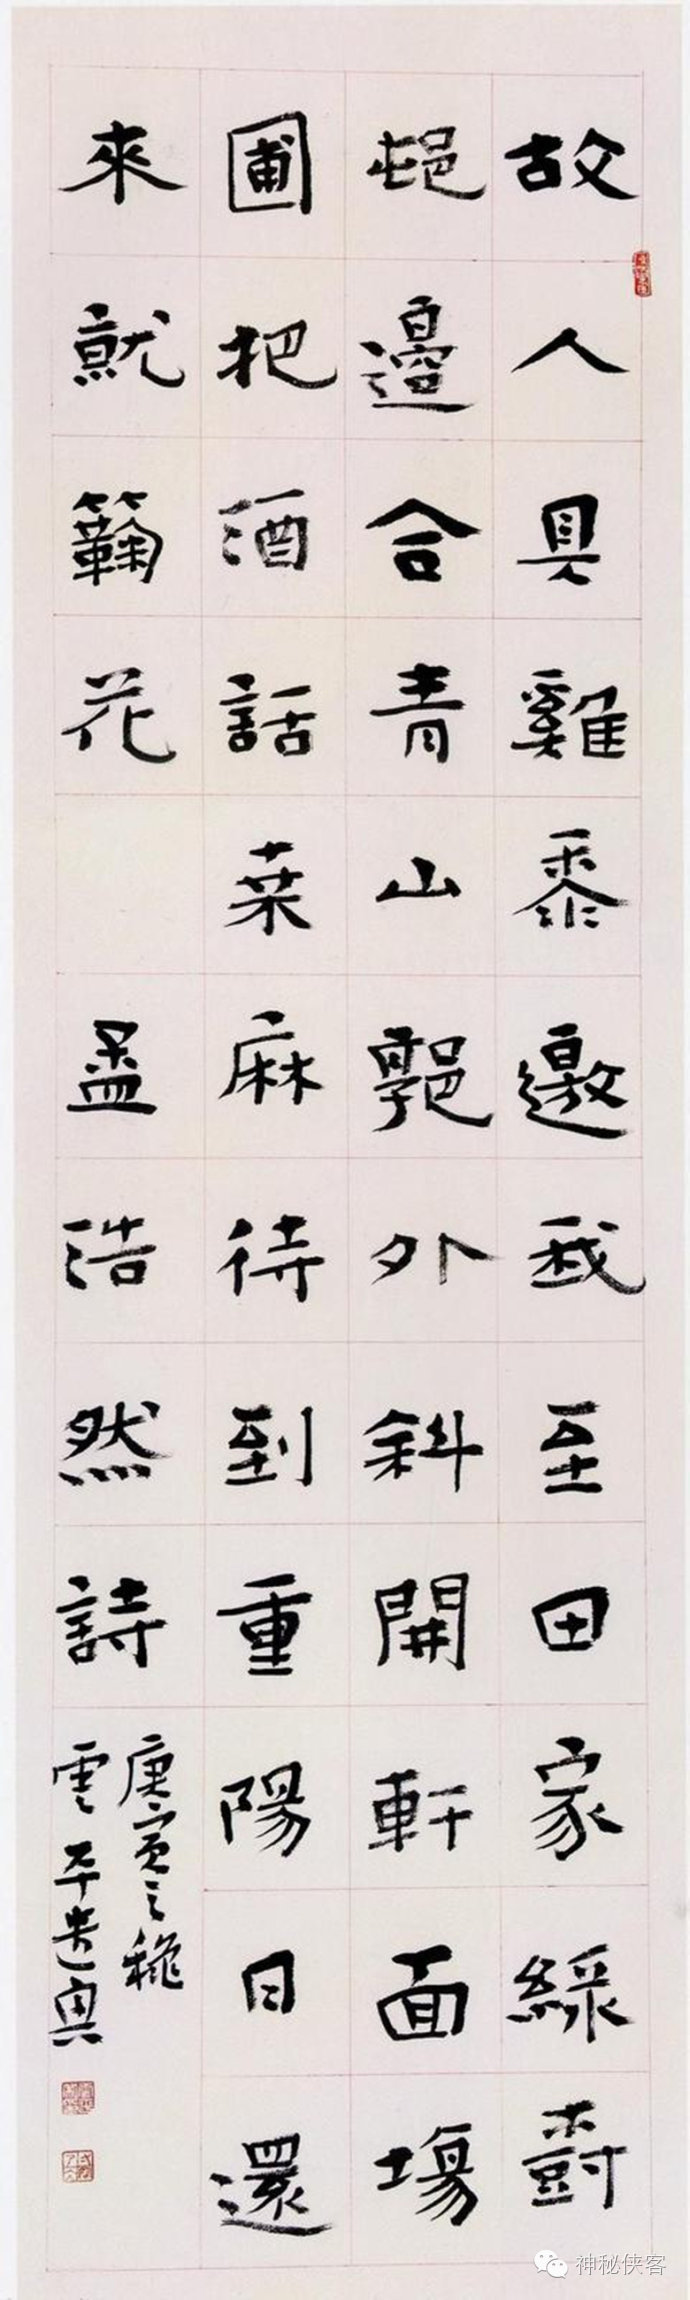 故人具雞黍邀我至田家綠樹
邨邊合青山郭外斜開軒面場
圃把酒話桒麻待到重陽日還
來就鞠花
孟浩然詩
庚寅之秋
雲平遣興
神秘侠客